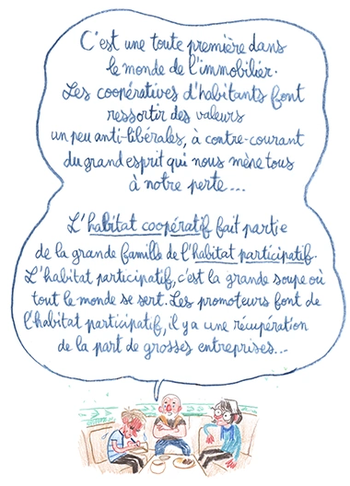 C'est une toute première dans
le monde de l'immobilier.
Les coopératives d'habitants font
ressortir des valeurs
un peu anti-libérales, à contre-courant
du grand esprit qui nous mène tous
à notre perte...
L'habitat coopératif fait partie
de la grande famille de l'habitat participatif.
L'habitat participatif, c'est la grande soupe où
tout le monde se sert. Les promoteurs font de
l'habitat participatif, il y a une récupération
de la part de grosses entreprises...